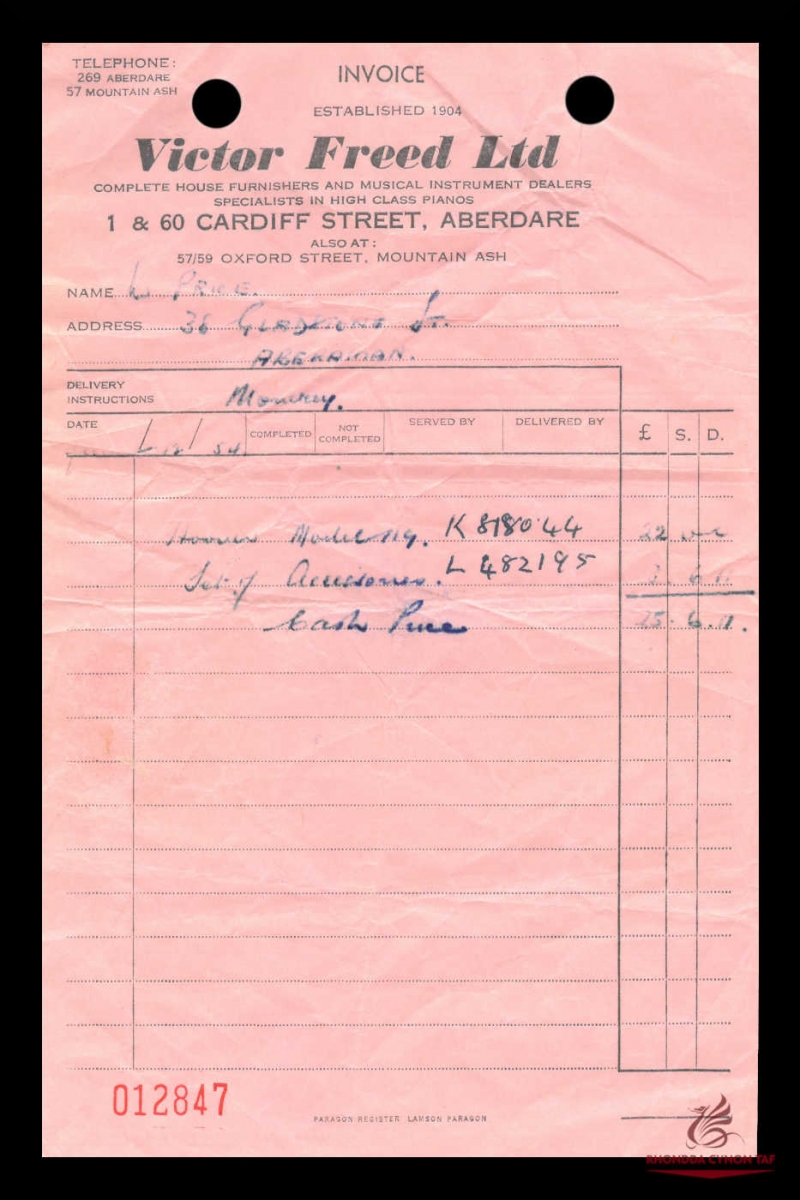 TELEPHONE:
269 ABERDARE
57 MOUNTAIN ASH
INVOICE
ESTABLISHED 1904
Victor Freed Ltd
COMPLETE HOUSE FURNISHERS AND MUSICAL INSTRUMENT DEALERS
SPECIALISTS IN HIGH CLASS PIANOS
1 & 60 CARDIFF STREET, ABERDARE
ALSO AT:
57/59 OXFORD STREET, MOUNTAIN ASH
NAME PRICE.
ADDRESS 36 GLADSTONE St.
ABERAMAN.
DELIVERY INSTRUCTIONS Monday.
DATE 12 / 54 COMPLETED NOT COMPLETED SERVED BY DELIVERED BY £ S. D.
Hoover Model 119. K 818044 22
Set of Accessories. L 482195 3. 6. 11
Cash Price 25. 6. 11.
012847
PARAGON REGISTER LAMSON PARAGON
RHONDDA CYNON TAF